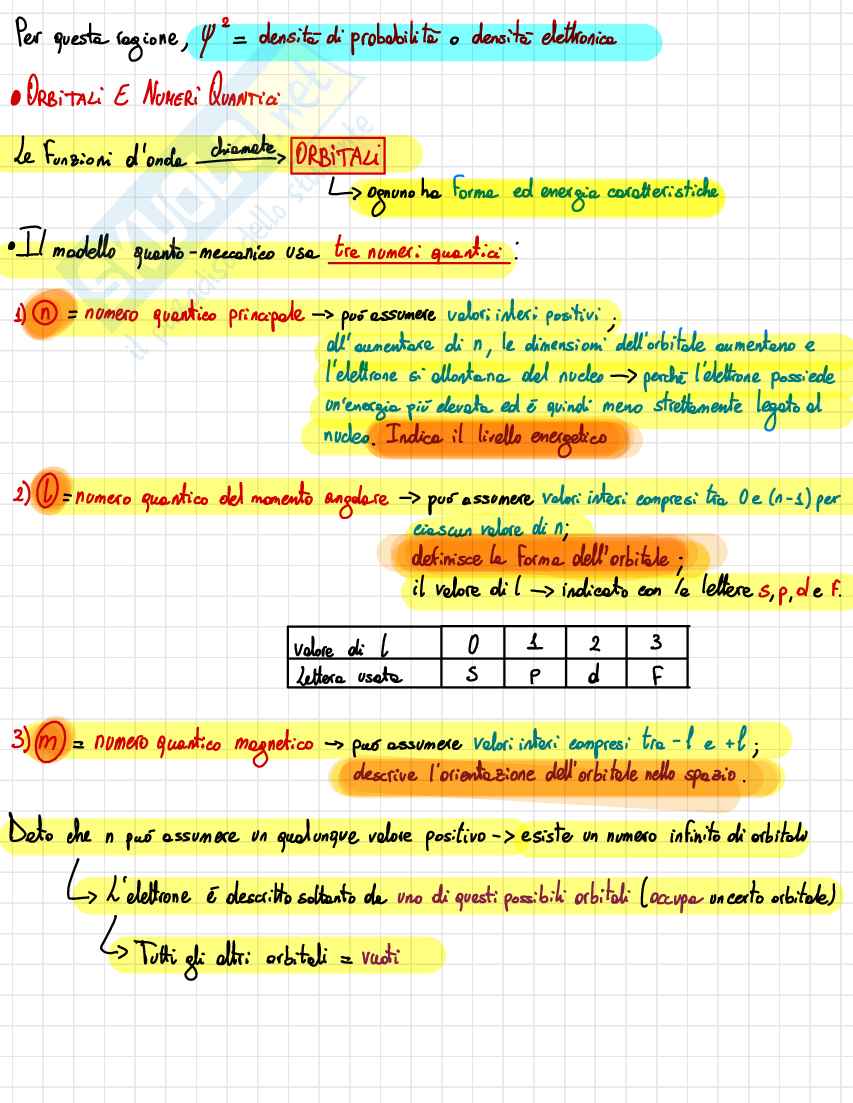 Per questa ragione, φ² = densità di probabilità o densità elettronica
• ORBITALI E NUMERI QUANTICI
Le Funzioni d'onda chiamate → ORBITALI
↳ ognuno ha Forma ed energia caratteristiche
• Il modello quanto-meccanico usa tre numeri quantici:
1) n = numero quantico principale → può assumere valori interi positivi;
all'aumentare di n, le dimensioni dell'orbitale aumentano e
l'elettrone si allontana del nucleo → perché l'elettrone possiede
un'energia più elevata ed è quindi meno strettamente legato al
nucleo. Indica il livello energetico
2) l = numero quantico del momento angolare → può assumere valori interi compresi tra 0 e (n-1) per
ciascun valore di n;
definisce la Forma dell'orbitale;
il valore di l → indicato con le lettere s, p, d e F.
Valore di l 0 1 2 3
Lettera usata S P d F
3) m = numero quantico magnetico → può assumere valori interi compresi tra -l e +l;
descrive l'orientazione dell'orbitale nello spazio.
Dato che n può assumere un qualunque valore positivo → esiste un numero infinito di orbitali
↳ L'elettrone è descritto soltanto da uno di questi possibili orbitali (occupa un certo orbitale)
↳ Tutti gli altri orbitali = vuoti
SKUOLA.net
il paradiso dello studente